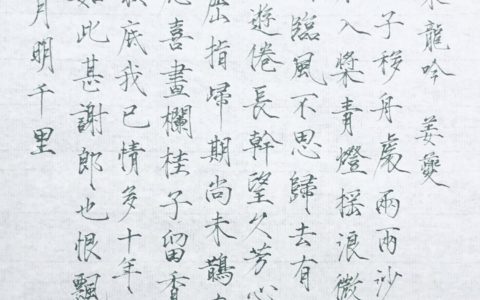 龍吟 姜夔
子移舟處兩兩沙
入槳青燈搖浪微
臨風不思歸去有
遊倦長幹望久芳心
屈指歸期尚未鵲
應喜畫欄桂子留香
底我已情多十年
如此甚謝郎也恨飄
月明千里